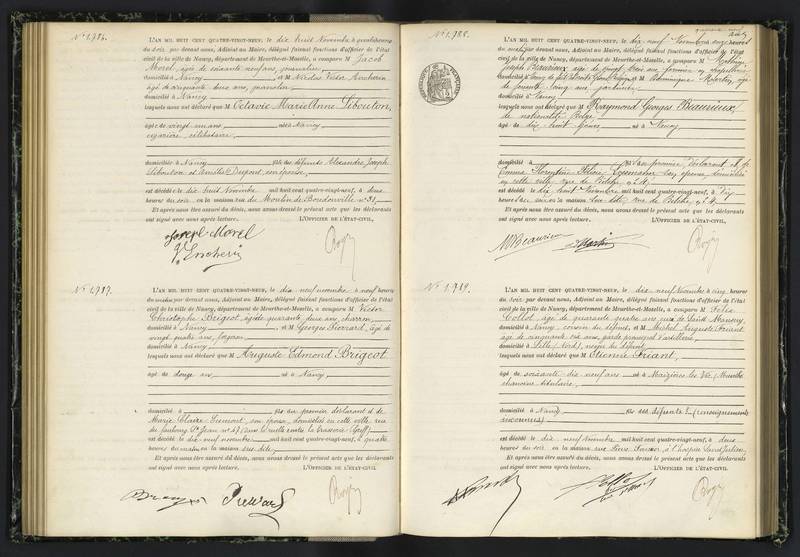 N° 1.986.
L'AN MIL HUIT CENT QUATRE-VINGT-NEUF, le dix huit Novembre à quatre heures
du soir par devant nous, Adjoint au Maire, délégué faisant fonctions d'officier de l'état
civil de la ville de Nancy, département de Meurthe-et-Moselle, a comparu M Jacob
Morel, âgé de soixante neuf ans, journalier,
domicilié à Nancy et M Nicolas Victor
âgé de cinquante deux ans,
domicilié à Nancy
lesquels nous ont déclaré que M Octavie Marie Anne Libouton,
âgée de vingt un ans, née à Nancy
célibataire,
domiciliée à Nancy fille des défunts Alexandre Joseph
Libouton et Amélie Dupont, son épouse,
est décédée le dix huit Novembre mil huit cent quatre-vingt-neuf, à deux
heures du soir en la maison rue du Moulin de Boudonville n° 31
Et après nous être assuré du décès, nous avons dressé le présent acte que les déclarants
ont signé avec nous après lecture. L'OFFICIER DE L'ÉTAT-CIVIL,
Joseph Morel
N° 1.987.
L'AN MIL HUIT CENT QUATRE-VINGT-NEUF, le dix neuf novembre à neuf heures
du matin par devant nous, Adjoint au Maire, délégué faisant fonctions d'officier de l'état
civil de la ville de Nancy, département de Meurthe-et-Moselle, a comparu M Victor
Christophe Brigeot, âgé de quarante deux ans, charron,
domicilié à Nancy et M Georges âgé de
vingt quatre ans,
domicilié à Nancy
lesquels nous ont déclaré que M Auguste Edmond Brigeot
âgé de douze ans né à Nancy,
domicilié à fils du premier déclarant et de
Marie Claire son épouse, domiciliés en cette ville, rue
du faubourg St Jean n° 47
est décédé le dix neuf novembre mil huit cent quatre-vingt-neuf, à quatre
heures du matin en la maison sus dite,
Et après nous être assuré du décès, nous avons dressé le présent acte que les déclarants
ont signé avec nous après lecture. L'OFFICIER DE L'ÉTAT-CIVIL,
N° 1.988.
L'AN MIL HUIT CENT QUATRE-VINGT-NEUF, le dix neuf Novembre à onze heures
du matin par devant nous, Adjoint au Maire, délégué faisant fonctions d'officier de l'état
civil de la ville de Nancy, département de Meurthe-et-Moselle, a comparu M
Joseph Beaurieux, âgé de vingt
domicilié à et M Dominique Martin, âgé
de soixante cinq ans,
domicilié à Nancy
lesquels nous ont déclaré que M Raymond Georges Beaurieux,
de nationalité Belge
âgé de dix huit jours, né à Nancy
domicilié à fils du premier déclarant et de
Emma Florentine son épouse domiciliés
en cette ville, rue de n° 4
est décédé le dix huit Novembre mil huit cent quatre-vingt-neuf, à dix
heures du soir en la maison sus dite, rue de n° 4
Et après nous être assuré du décès, nous avons dressé le présent acte que les déclarants
ont signé avec nous après lecture. L'OFFICIER DE L'ÉTAT-CIVIL,
Beaurieux Martin
N° 1.989.
L'AN MIL HUIT CENT QUATRE-VINGT-NEUF, le dix neuf Novembre à cinq heures
du soir par devant nous, Adjoint au Maire, délégué faisant fonctions d'officier de l'état
civil de la ville de Nancy, département de Meurthe-et-Moselle, a comparu M Félix
Collot, âgé de quarante quatre ans, curé de Saint Mansuy,
domicilié à Nancy cousin du défunt, et M Michel Auguste Friant
âgé de cinquante six ans, garde principal d'artillerie,
domicilié à Lille (Nord), neveu du défunt,
lesquels nous ont déclaré que M Etienne Friant,
âgé de soixante dix neuf ans né à Maizières les Vic, (Meurthe
chanoine titulaire,
domicilié à Nancy fils des défunts (renseignements
inconnus)
est décédé le dix neuf Novembre mil huit cent quatre-vingt-neuf, à deux
heures du soir en la maison rue à l'hospice Saint Julien,
Et après nous être assuré du décès, nous avons dressé le présent acte que les déclarants
ont signé avec nous après lecture. L'OFFICIER DE L'ÉTAT-CIVIL,